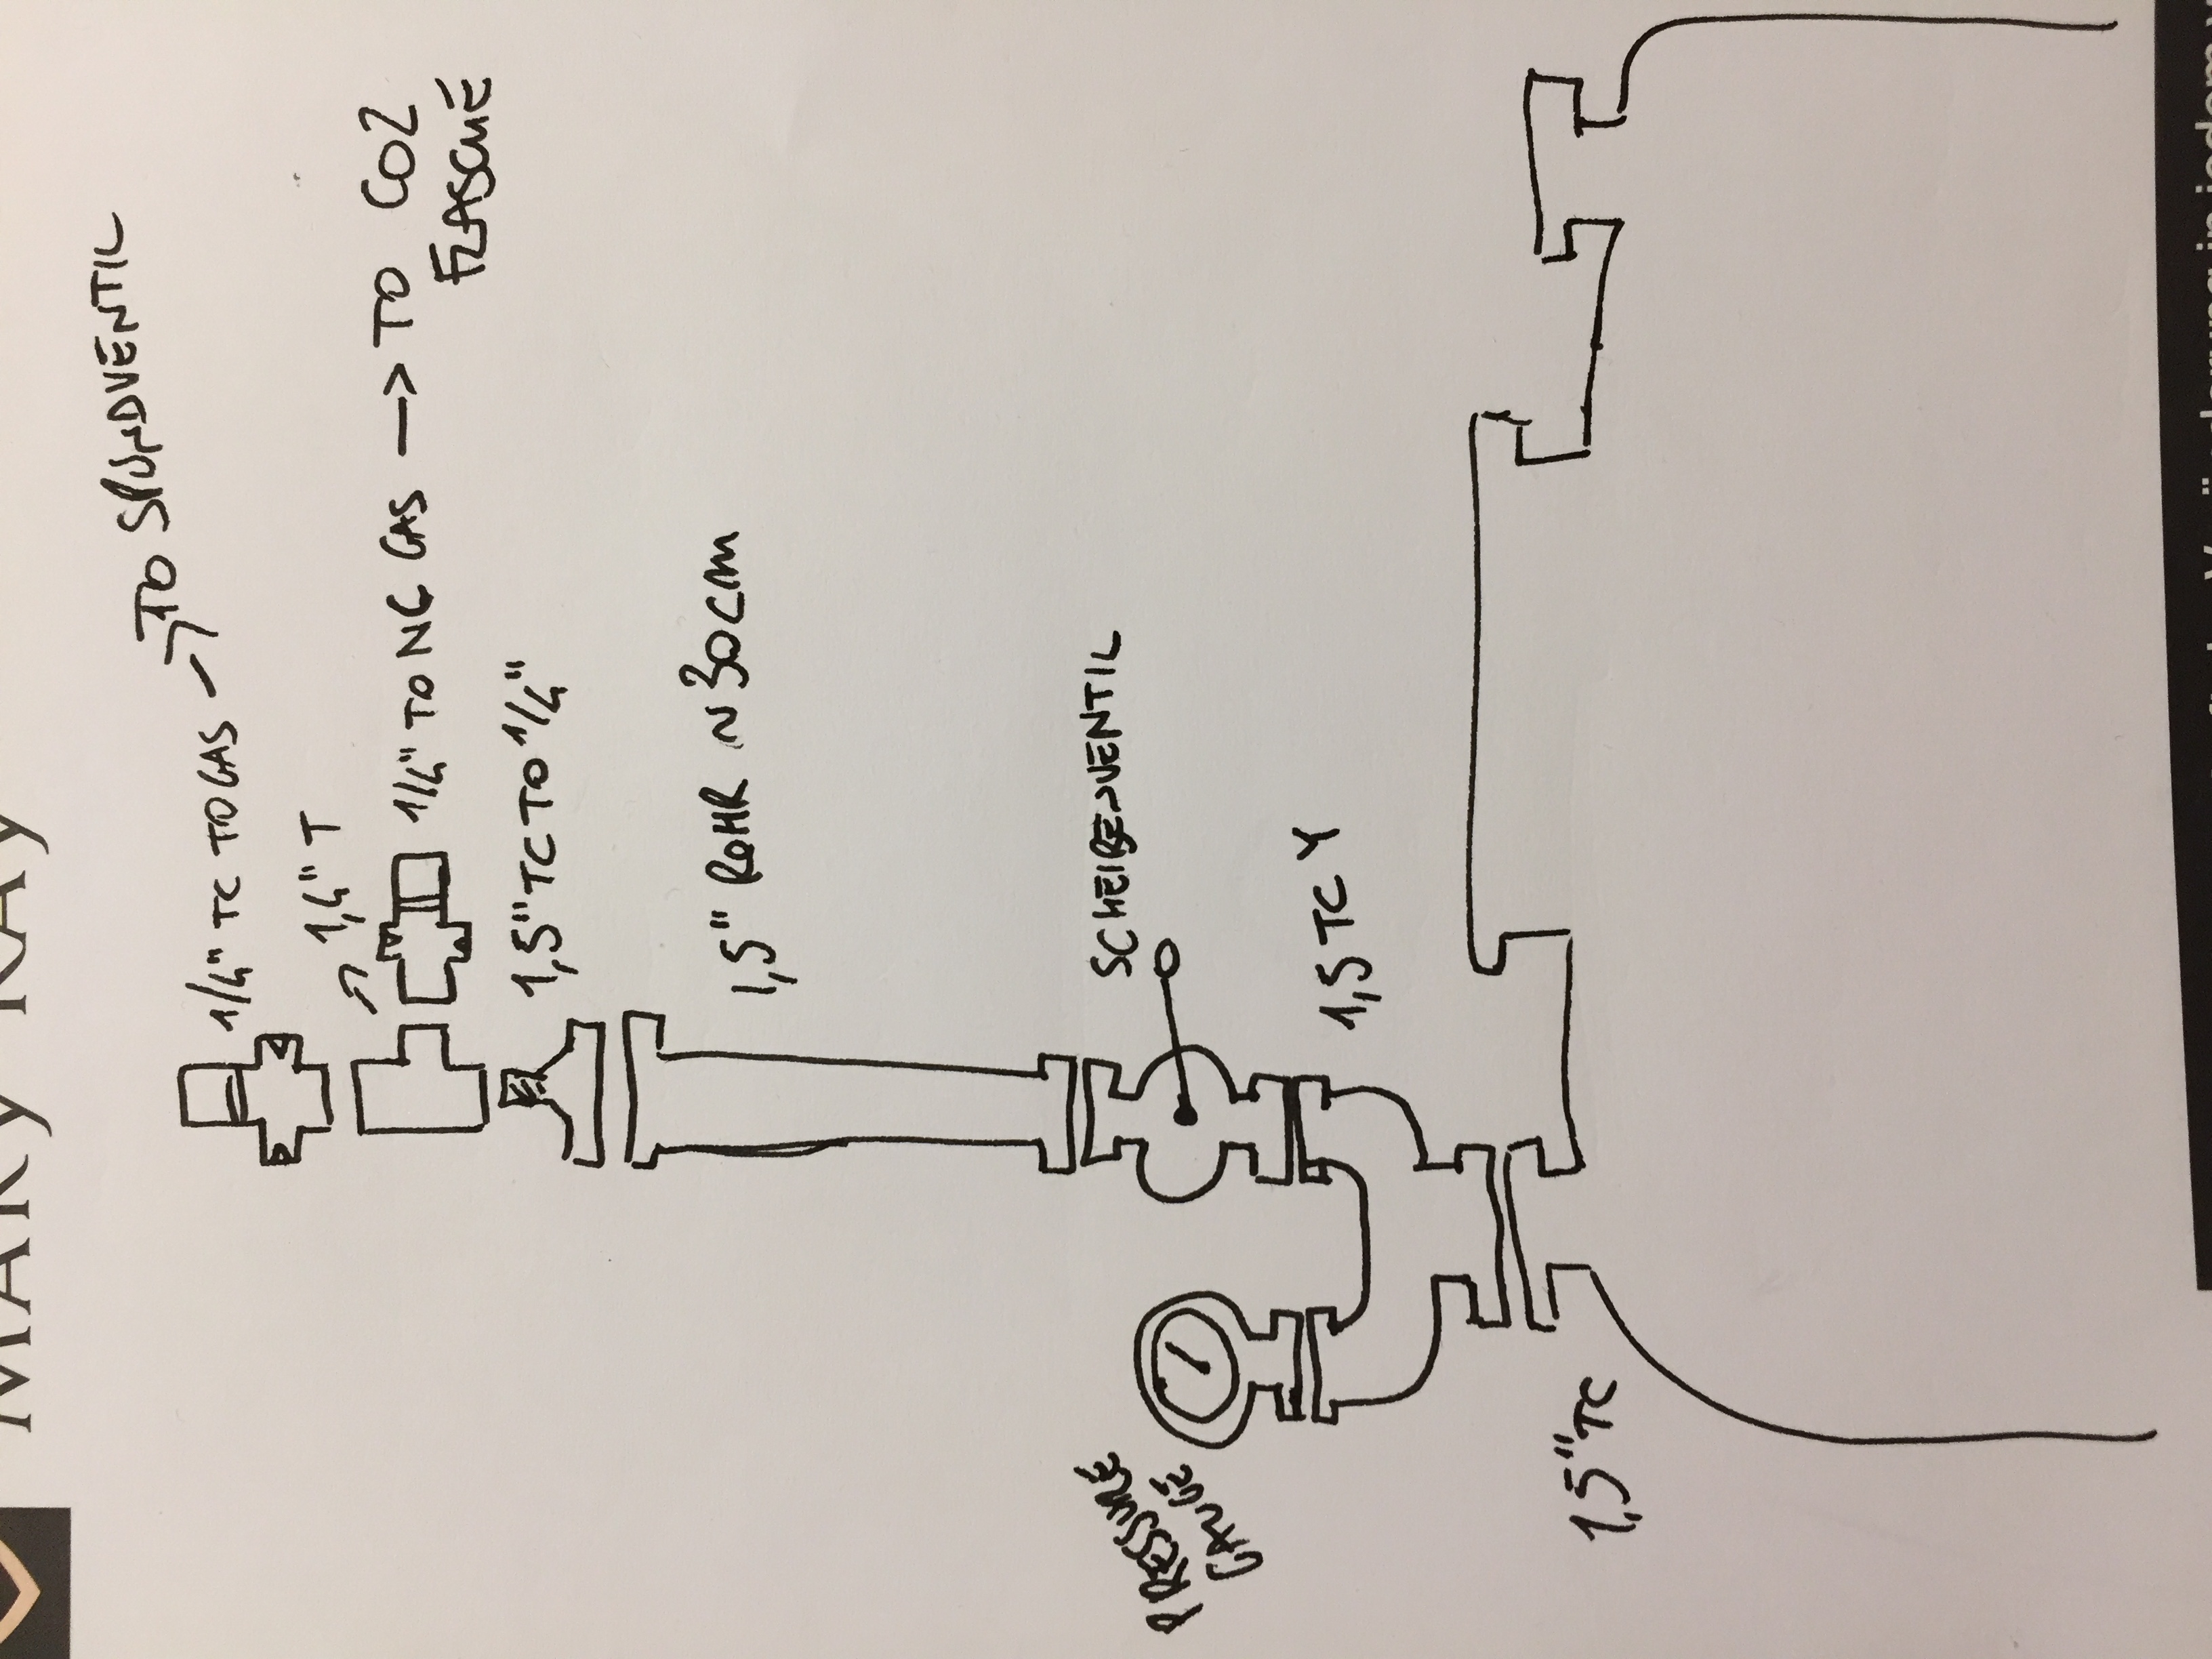 MARY KAY
1/4" TC TO GAS → TO SPUNDVENTIL
1/4" T
1/4" TO NC GAS → TO CO2
FLASCHE
1,5" TC TO 1/4"
1,5" ROHR ~ 30CM
SCHEIBENVENTIL
PRESSURE
GAUGE
1,5 TC Y
1,5" TC